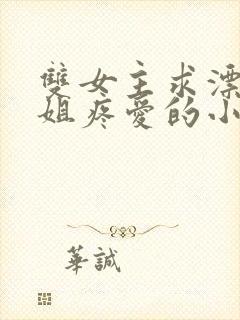 雙女主求漂
姐疼愛的小
華誠